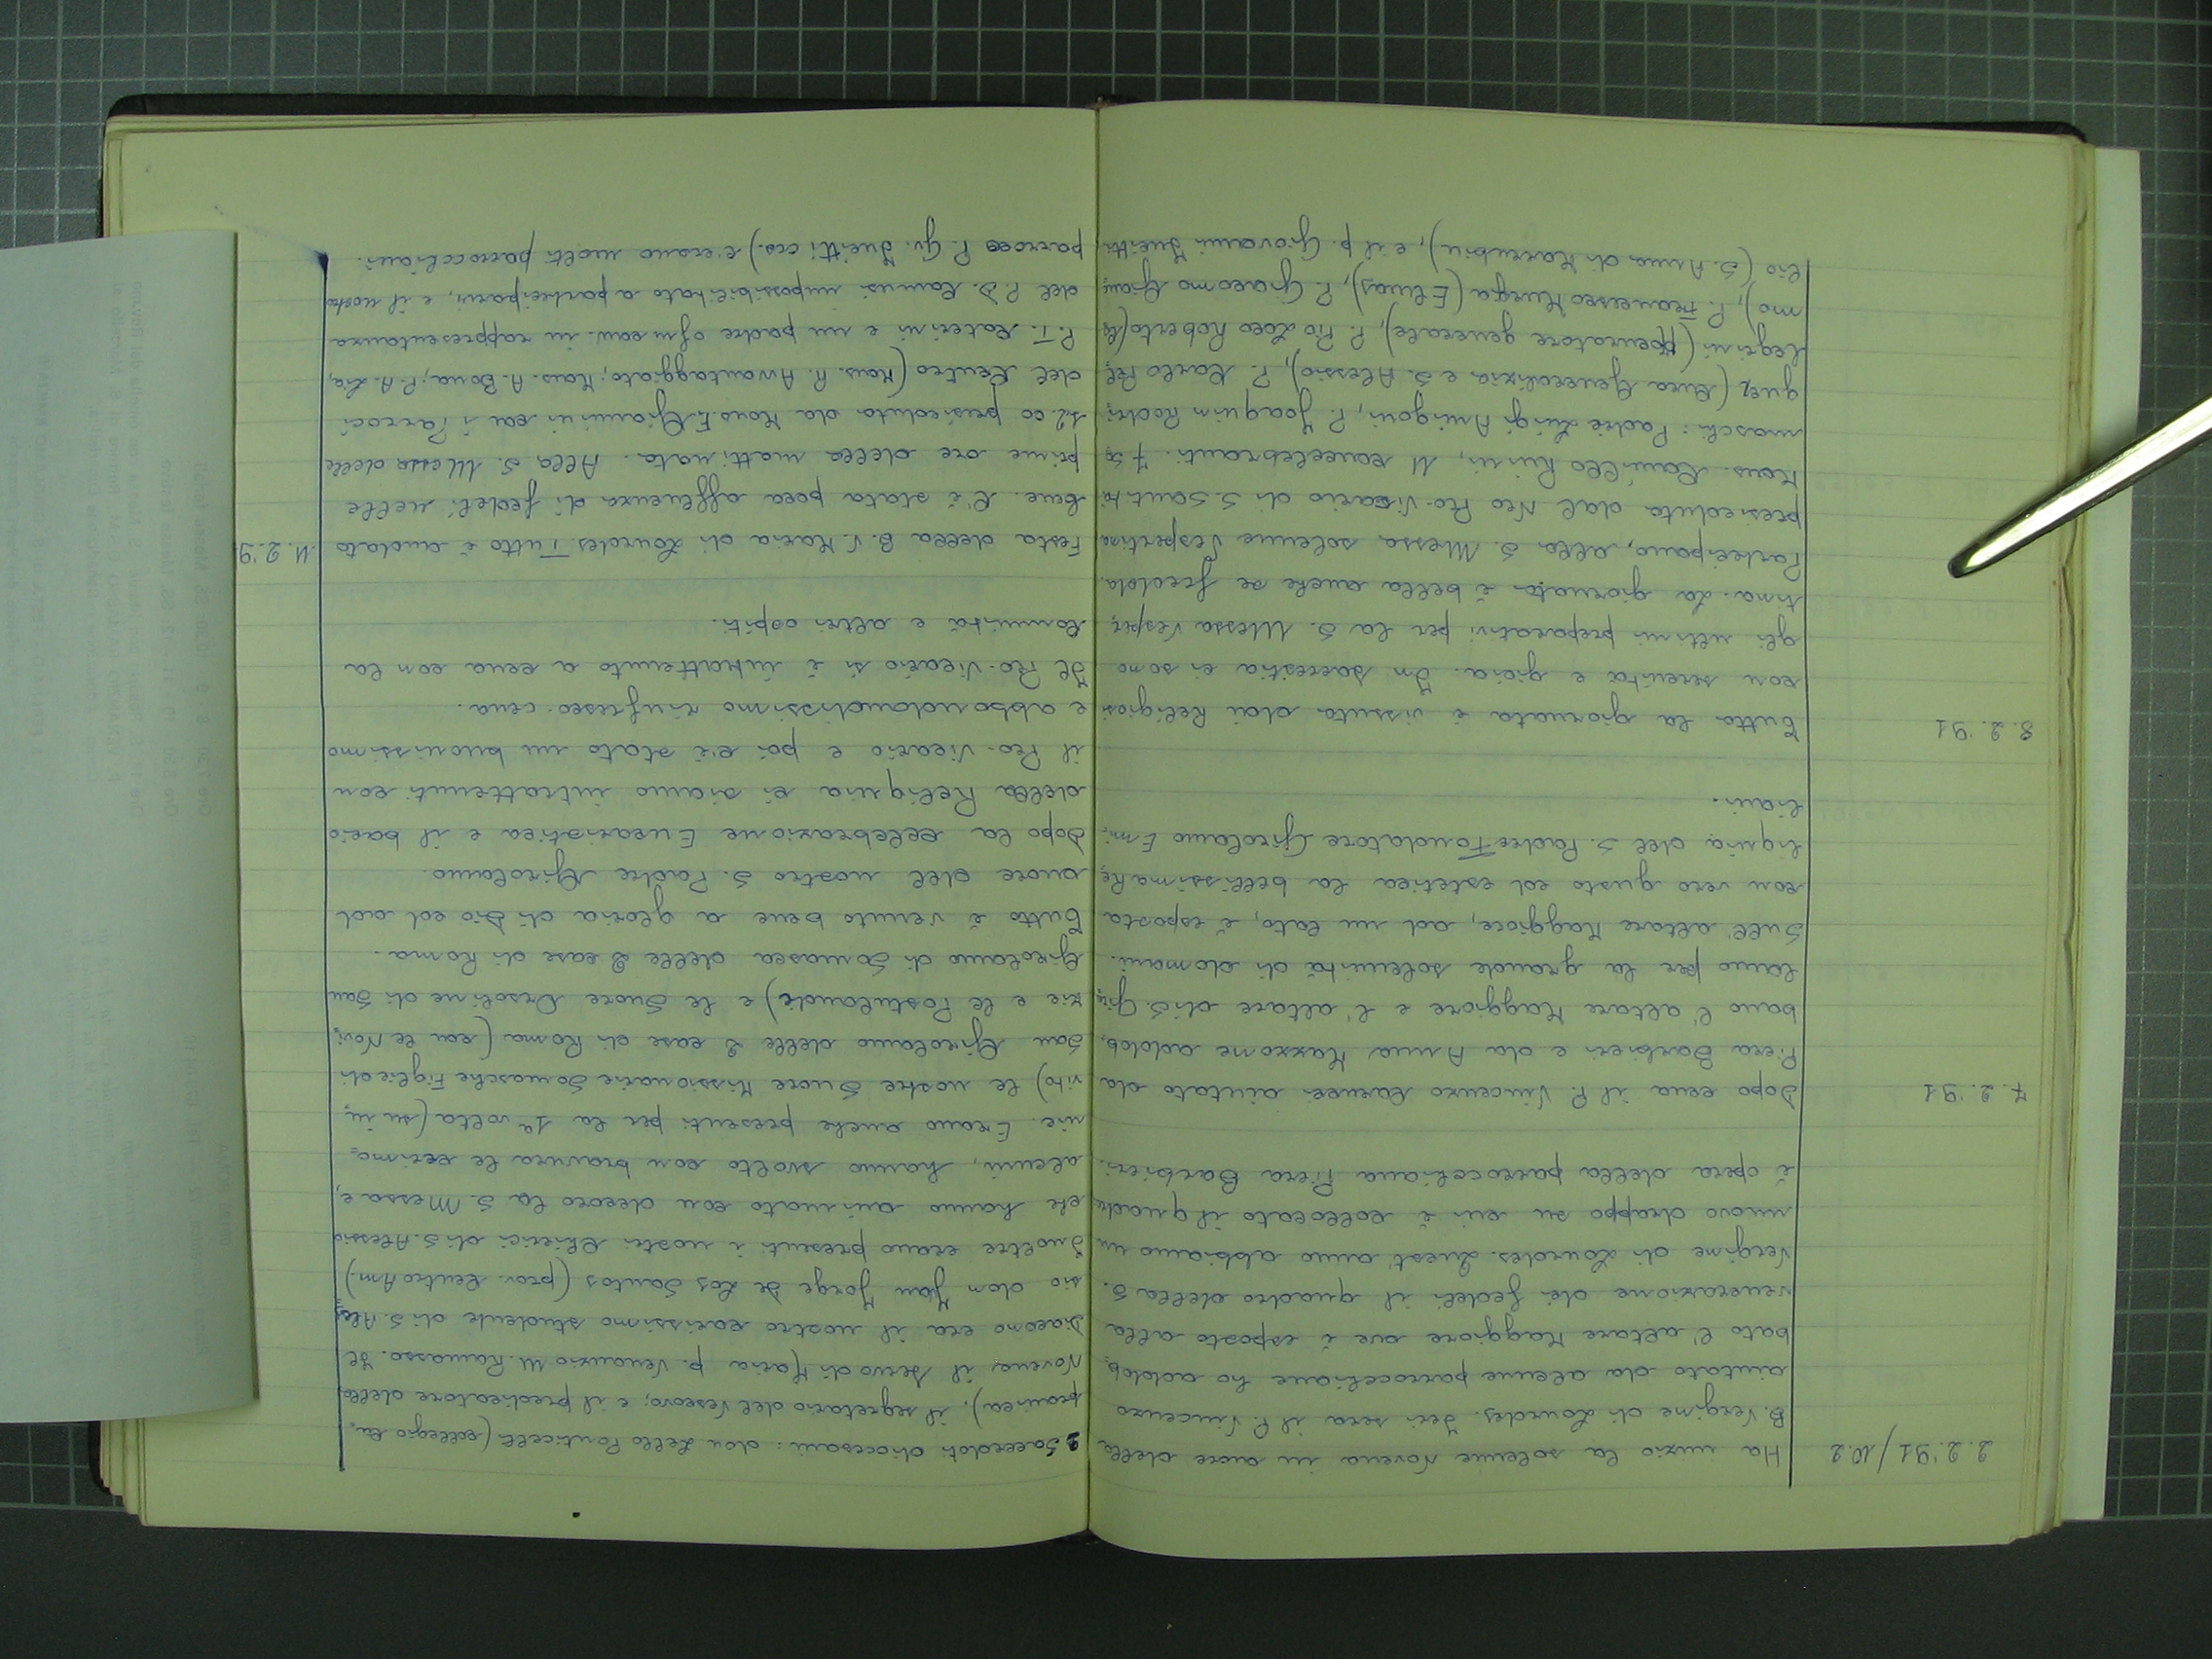 2.2.'91/10.2
Ha inizio la solenne Novena in onore della
B. Vergine di Lourdes. Ieri sera il P. Vincenzo
aiutato da alcune parrocchiane ha addob,
bato l'altare Maggiore ove è esposto alla
venerazione dei fedeli il quadro della S.
Vergine di Lourdes. Quest'anno abbiamo un
nuovo drappo su cui è collocato il quadro
è opera della parrocchiana Piera Barbieri.
7.2.'91
Dopo cena il P. Vincenzo aiutato da
Piera Barbieri e da Anna Mazzone addob,
bano l'altare Maggiore e l'altare di S. Giro,
lamo per la grande solennità di domani.
Sull'altare Maggiore, ad un lato, è esposta
con vero gusto ed estetica la bellissima Re,
liquia del S. Padre Fondatore Girolamo Emi,
liani.
8.2.'91
Tutta la giornata è vissuta dai Religiosi
con serenità e gioia. In sacrestia ci sono
gli ultimi preparativi per la S. Messa Vesper,
tina. La giornata è bella anche se fredda.
Partecipano, alla S. Messa solenne Vespertina
presieduta dal Neo Pro-Vicario di S. Santità
Mons. Camillo Ruini, 11 concelebranti. 7 So,
maschi: Padre Luigi Amigoni, P. Joaquin Rodri,
guez (Curia Generalizia e S. Alessio), P. Carlo Pel,
legrini (procuratore generale), P. Pio Loco Roberto
mo), P. Francesco Murgia (Elmas), P. Giacomo
lio (S. Anna di Marrubiu), e il p. Giovanni
2 Sacerdoti diocesani: don Lello Ponticelli (collegio
pranica), il segretario del Vescovo; e il predicatore della
Novena il servo di Maria p. Venanzio M. Ramasso. Il
Diacono era il nostro carissimo studente di S. Ales,
sio don Juan Jorge De Los Santos (prov. Centro Am.)
Inoltre erano presenti i nostri Chierici di S. Alessio
che hanno animato con decoro la S. Messa e,
alcuni, hanno svolto con bravura le cerimo,
nie. Erano anche presenti per la 1ª volta (su in,
vito) le nostre Suore Missionarie Somasche Figlie di
San Girolamo delle 2 case di Roma (con le Novi,
zie e le Postulandi) e le Suore Orsoline di San
Girolamo di Somasca delle 2 case di Roma.
Tutto è venuto bene a gloria di Dio ed ad
onore del nostro S. Padre Girolamo.
Dopo la celebrazione Eucaristica e il bacio
della Reliquia ci siamo intrattenuti con
il Pro-Vicario e poi c'è stato un buonissimo
e abbondantissimo rinfresco-cena.
Il Pro-Vicario si è intrattenuto a cena con la
Comunità e altri ospiti.
11.2.'91
Festa della B.V. Maria di Lourdes. Tutto è andato
bene. C'è stata poca affluenza di fedeli nelle
prime ore della mattinata. Alla S. Messa delle
12.00 presieduta da Mons. F. Giannini con i Parroci
del Centro (Mons. R. Avantaggiato; Mons. A. Bona; P. A. Lia,
P. T. Caterini e un padre ofm conv. in rappresentanza
del P. D. Camusi impossibilitato a partecipare, e il nostro
parroco P. Gv. crs.) c'erano molti parrocchiani.